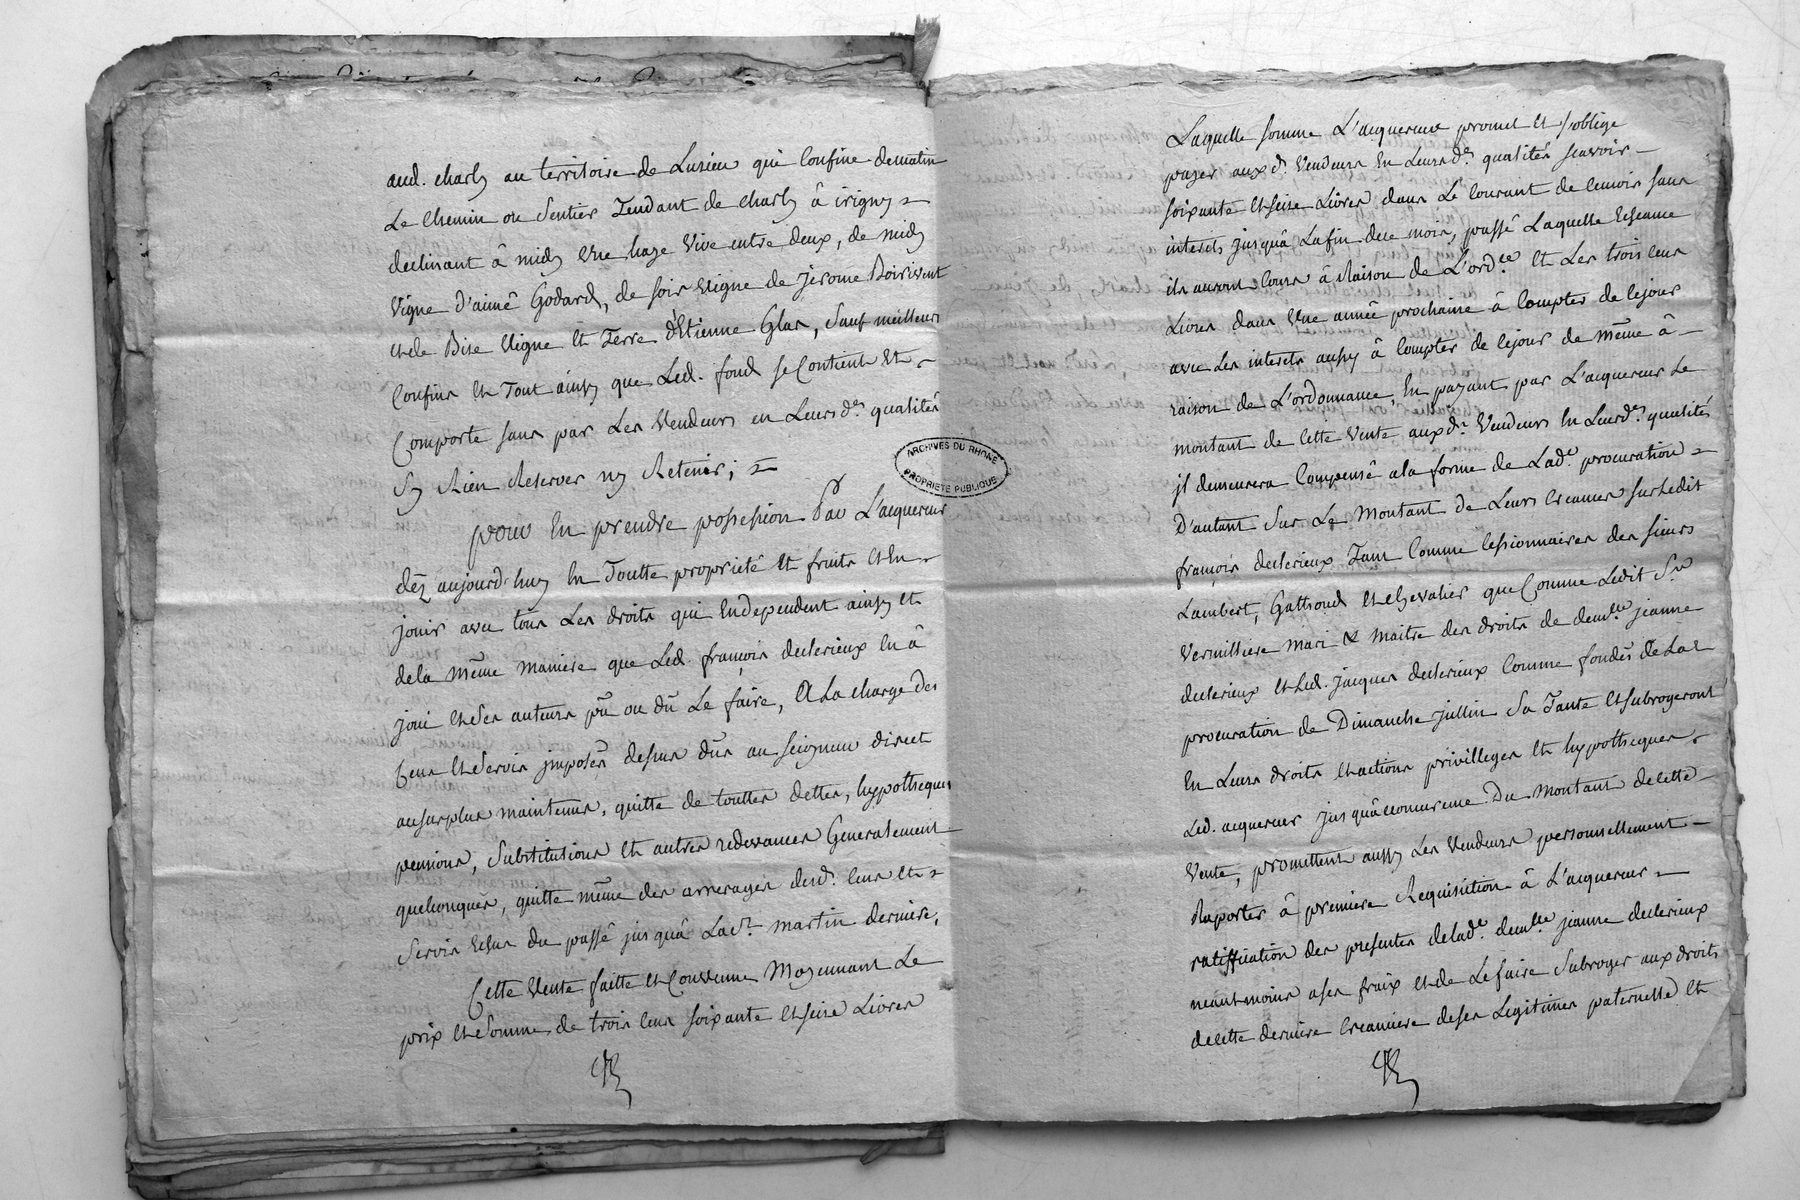 aud. charly au territoire de Lusieu qui Confine dematin
Le Chemin ou Sentier Tendant de charly â irigny
declinant â midy Une haye Vive entre deux, de midy
Vigne d'aimé Godard, de soir Vigne de jerome Boirivent
et de Bise Vigne et Terre d'Etienne Glas, Sauf meilleurs
Confins et Tout ainsy que Led. fond se Contient et
Comporte sans par Les Vendeurs en Leursd. qualités
sy Rien Reserver ny Retenir;
pour En prendre possession Par L'acquereur
dèz aujourd'huy En Toutte proprieté et fruits et En
jouir avec tous Les droits qui Endependent ainsy et
dela même maniere que Led. françois declerieux En â
joui et Ses auteurs pû ou dû Le faire, A La charge des
Cens et Servis jmposés dessus dûs au Seigneur direct
ausurplus maintenus, quitte de touttes dettes, hypotheques
pensions, Substitutions et autres redevances Generalement
quelconques, quitte même des arrerages desd. Cens et
Servis Echus du passé jusquâ La St. martin derniere,
Cette Vente faitte et Convenue Moyennant Le
prix et Somme de trois Cens soixante et seise Livres
ARCHIVES DU RHONE
PROPRIETE PUBLIQUE
Laquelle somme L'acquereur promet et s'oblige
payer auxd. Vendeurs En Leursd. qualités scavoir
soixante et seise Livres dans Le Courant de cemois sans
interets jusquâ Lafin duce mois, passé Laquelle Echeance
ils auront Cours â Raison de L'ord.ce et Les trois Cens
Livres dans Une année prochaine â Compter de cejour
avec Les interets aussy â Compter de cejour de même â
raison de L'ordonnance, En payant par L'acquereur Le
montant de Cette Vente auxd. Vendeurs En Leursd. qualités
jl demeurera Compensé ala forme de Lad. procuration
D'autant Sur Le Montant de Leurs Creances sur Ledit
françois declerieux Tant Comme Cessionnaires des sieurs
Lambert, Gathoud et chevalier que Comme Ledit Sr.
Vermilliere Mari & Maitre des droits de demlle jeanne
declerieux et Led. jacques declerieux Comme fondé de La
procuration de Dimanche jullin Sa Tante et subrogeront
En Leurs droits et actions privilleges et hypotheques
Led. acquereur jusquâ concurrence Du Montant decette
Vente, promettent aussy Les Vendeurs personnellement
Raporter â premiere Requisition â L'acquereur
ratiffication des presentes delad. demlle jeanne declerieux
neantmoins ases fraix et de Le faire Subroger aux droits
decette derniere Creanciere deses Legitimes paternelle et